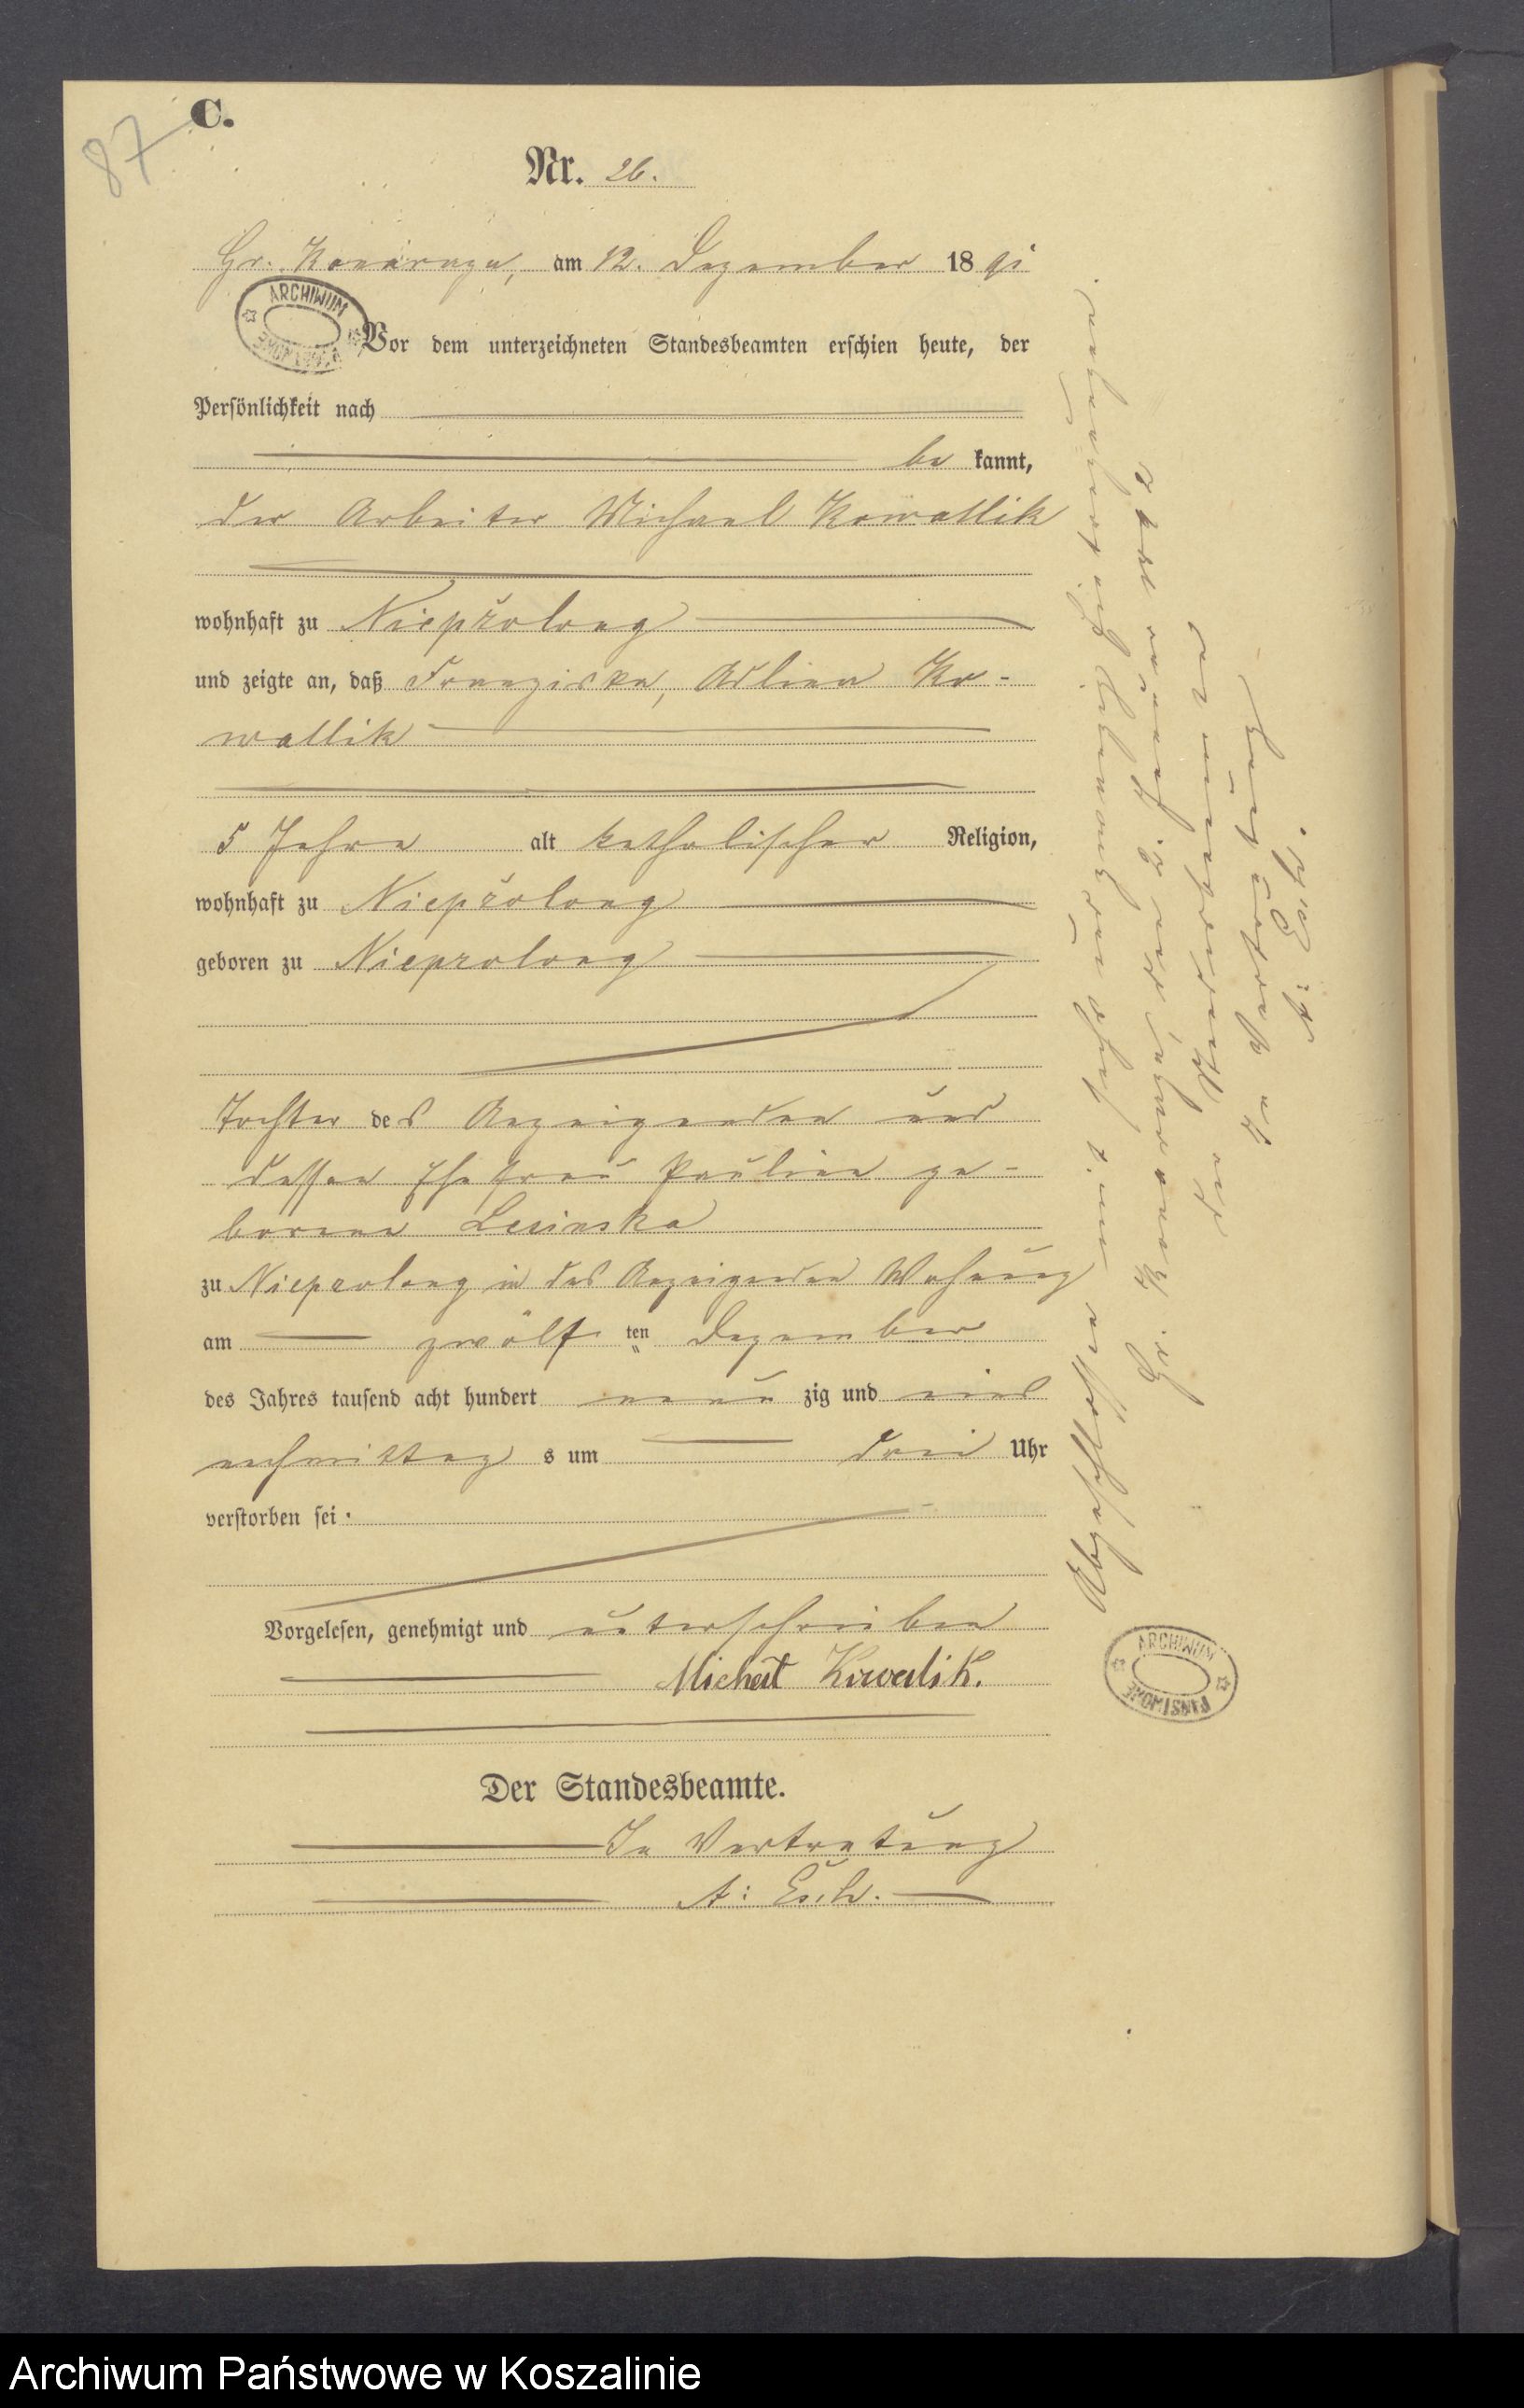 87
C.
Nr. 26.
Gr. Konarczyn, am 12. Dezember 18 91
ARCHIWUM
Vor dem unterzeichneten Standesbeamten erschien heute, der
Persönlichkeit nach
be kannt,
der Arbeiter Michael Kowallik
wohnhaft zu Nieprolong
und zeigte an, daß Franziska, Ko-
wallik
5 Jahre alt katholischer Religion,
wohnhaft zu Nieprolong
geboren zu Nieprolong
Tochter des Anzeigenden und
dessen Ehefrau Pauline ge-
borene Lesinska
zu Nieprolong in des Anzeigenden Wohnung
am zwölf ten Dezember
des Jahres tausend acht hundert neun zig und eins
nachmittag s um drei Uhr
verstorben sei.
Vorgelesen, genehmigt und unterschrieben
Kowalik.
Der Standesbeamte.
In Vertretung
Abgeschlossen mit sechsundzwanzig
Gr. den 2. Januar 1892
Der Standesbeamte
In Vertretung
ARCHIWUM
PAŃSTWOWE
Archiwum Państwowe w Koszalinie